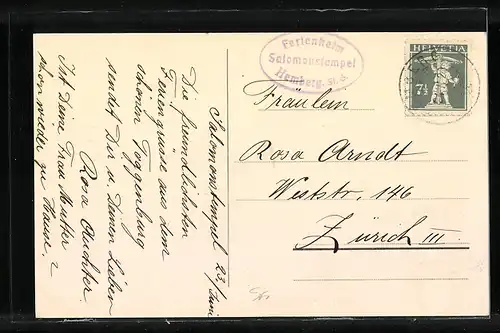 Ferienheim
Salomonstempel
Hemberg, St. G.
HELVETIA
7½
Fräulein
Rosa Arndt
Weststr, 146
Zürich III.
Salomonstempel 23/Juni
Die freundlichsten
Feriengrüsse aus dem
schönen Toggenburg
sendet Dir u. Deinen Lieben
Rosa
Ist Deine Frau Mutter
schon wieder zu Hause?